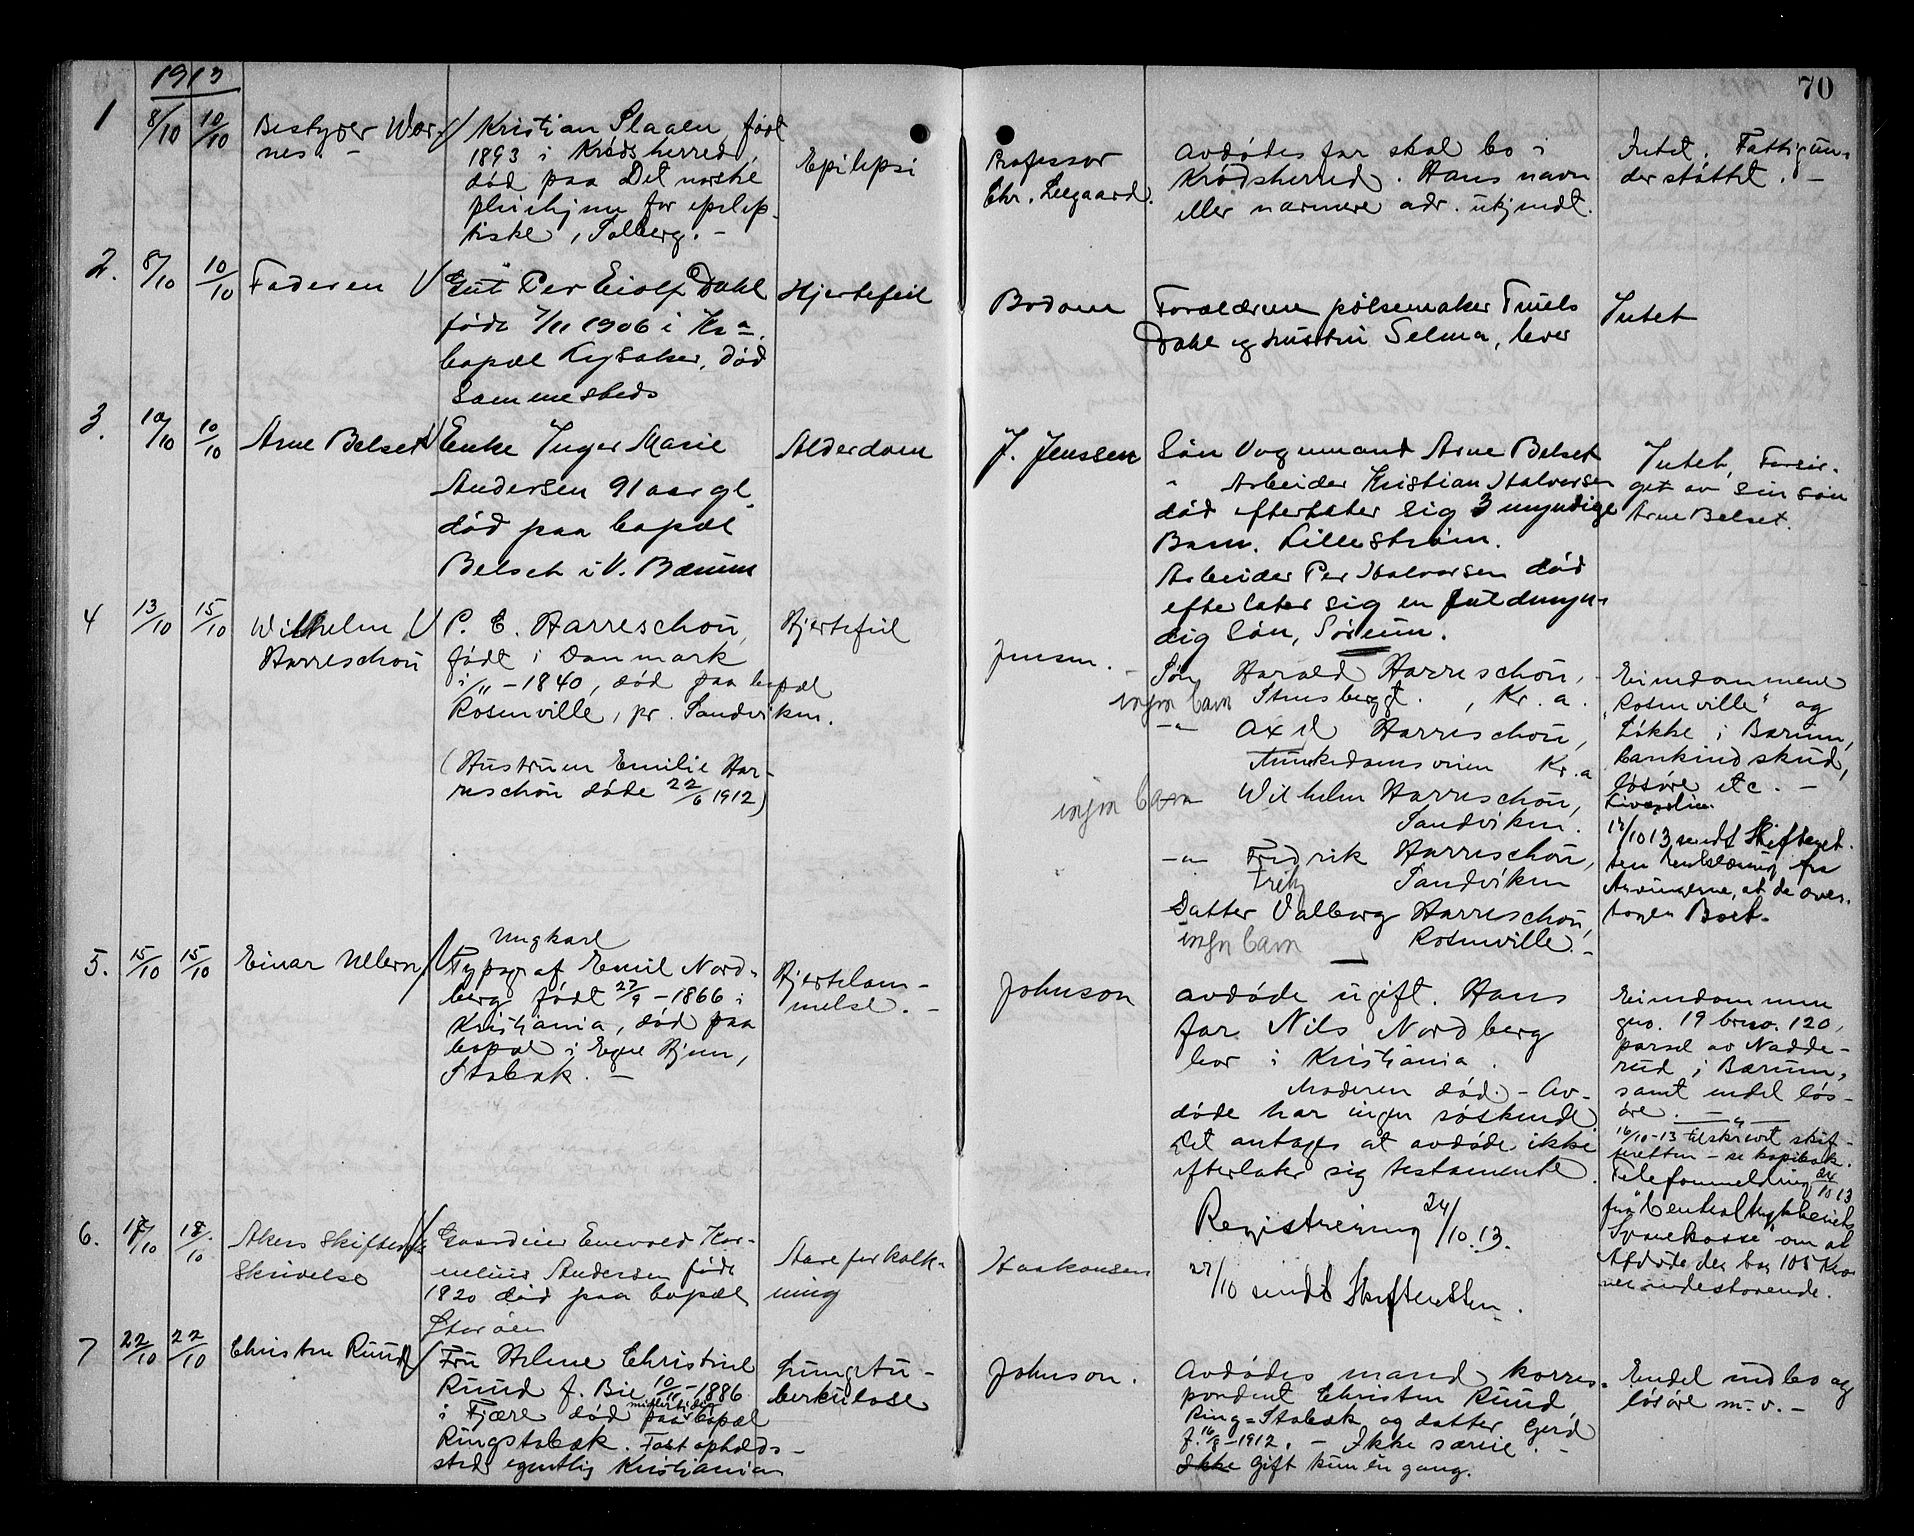 1913
70
1
8/10
10/10
Bestyrer Wær-
nes. -
Kristian Slaaen, født
1893 i Krødsherred,
død paa Det norske
pleiehjem for epilep-
tiske, Solberg. -
Epilepsi
Professor
Chr. Leegaard.
Avdødes far skal bo i
Krødsherred. Hans navn
eller nærmere adr. ukjendt.
Intet. Fattigun-
derstøttet. -
2.
8/10
10/10
Faderen
Gut Per Eiolf Dahl
født 7/11 1906 i Kr.a.
bopæl Lysaker, død
sammesteds
Hjertefeil
Bodom
Forældrene pølsemaker Truels
Dahl og hustru Selma, lever
Intet
3.
10/10
10/10
Arne Belset
Enke Inger Marie
Andersen 91 aar gl.
død paa bopæl
Belset i V. Bærum
Alderdom
J. Jenssen
Søn Vognmand Arne Belset
" Arbeider Kristian Halvorsen
død efterlater sig 3 myndige
Barn. Lillestrøm.
Arbeider Per Halvorsen død
efterlater sig en fuldmyn-
dig Søn, Sørum.
Intet, Forsør-
get av sin søn
Arne Belset.
4
13/10
15/10
Wilhelm
Harreschou
P. E. Harreschou,
født i Danmark
i /11 - 1840, død paa bopæl
Rosenville, pr. Sandviken.
(Hustruen Emilie Har-
reschou døde 22/6 1912)
Hjertefeil
Jensen. -
Søn Harald Harreschou,
ingen barn Stensberggt. , Kr.a.
-"- Axel Harreschou,
Munkedamsveien Kr.a
ingen barn Wilhelm Harreschou,
Sandviken.
-"- Fredrik Harreschou,
Fritz Sandviken
Datter Valborg Harreschou,
ingen barn Rosenville. -
Eiendommene
"Rosenville" og
Løkke i Bærum,
bankindskud,
løsøre etc. -
Livspolice.
17/10 13 sendt Skifteret-
ten fra
Arvingerne, at de over-
tager Boet.
5.
15/10
15/10
Einar Ullern
Ungkarl
Typograf Emil Nord-
berg født 27/9 - 1866 i
Kristiania, død paa
bopæl i Egne Hjem,
Stabæk. -
Hjertelam-
melse. -
Johnson
avdøde ugift. Hans
far Nils Nordberg
bor i Kristiania.
Moderen død. - Av-
døde har ingen søskende
Det antages at avdøde ikke
efterlater sig testamente.
Registrering 24/10.13.
27/10 sendt Skifteretten.
Eiendommen
gno. 19 brno. 120,
parsel av Nadde-
rud i Bærum,
samt endel løs-
øre. - " -
16/10-13 tilskrevet skif-
teretten - se kopibok.
Telefonmelding 24/10 13
fra "Centraltrykkeriets
Sparekasse" om at
Afdøde der har 105 Kro-
ner indestaaende.
6.
17/10
18/10
Akers Skifteret
Skrivelse
Gaardeier Enevold Kor-
nelius Andersen født
1820 død paa bopæl
Storøen
Aareforkalk-
ning
Haakonsen
7
22/10
22/10
Christen Ruud
Fru Helene Christine
Ruud f. Bie 10/11 - 1886
i Fjære død paa midlertidig bopæl
Ringstabæk. Fast opholds-
sted egentlig Kristiania
Lungetu-
berkulose
Johnson.
Avdødes mand korres-
pondent Christen Ruud,
Ring-Stabæk og datter Gerd
f. 16/8 - 1912. - Ikke særeie. -
Ikke Gift kun én gang.
Endel indbo og
løsøre m.v. -